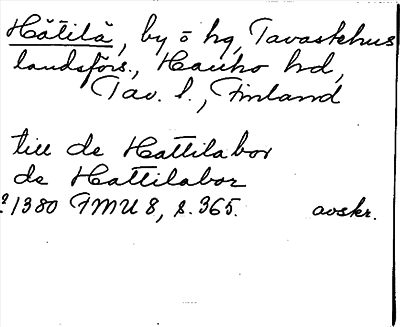 Hätilä, by o hg, Tavastehus
landsförs., Hauho hd,
Tav. l., Finland
till de Hattilabor
de Hattilabor
? 1380 FMU 8, s. 365. avskr.